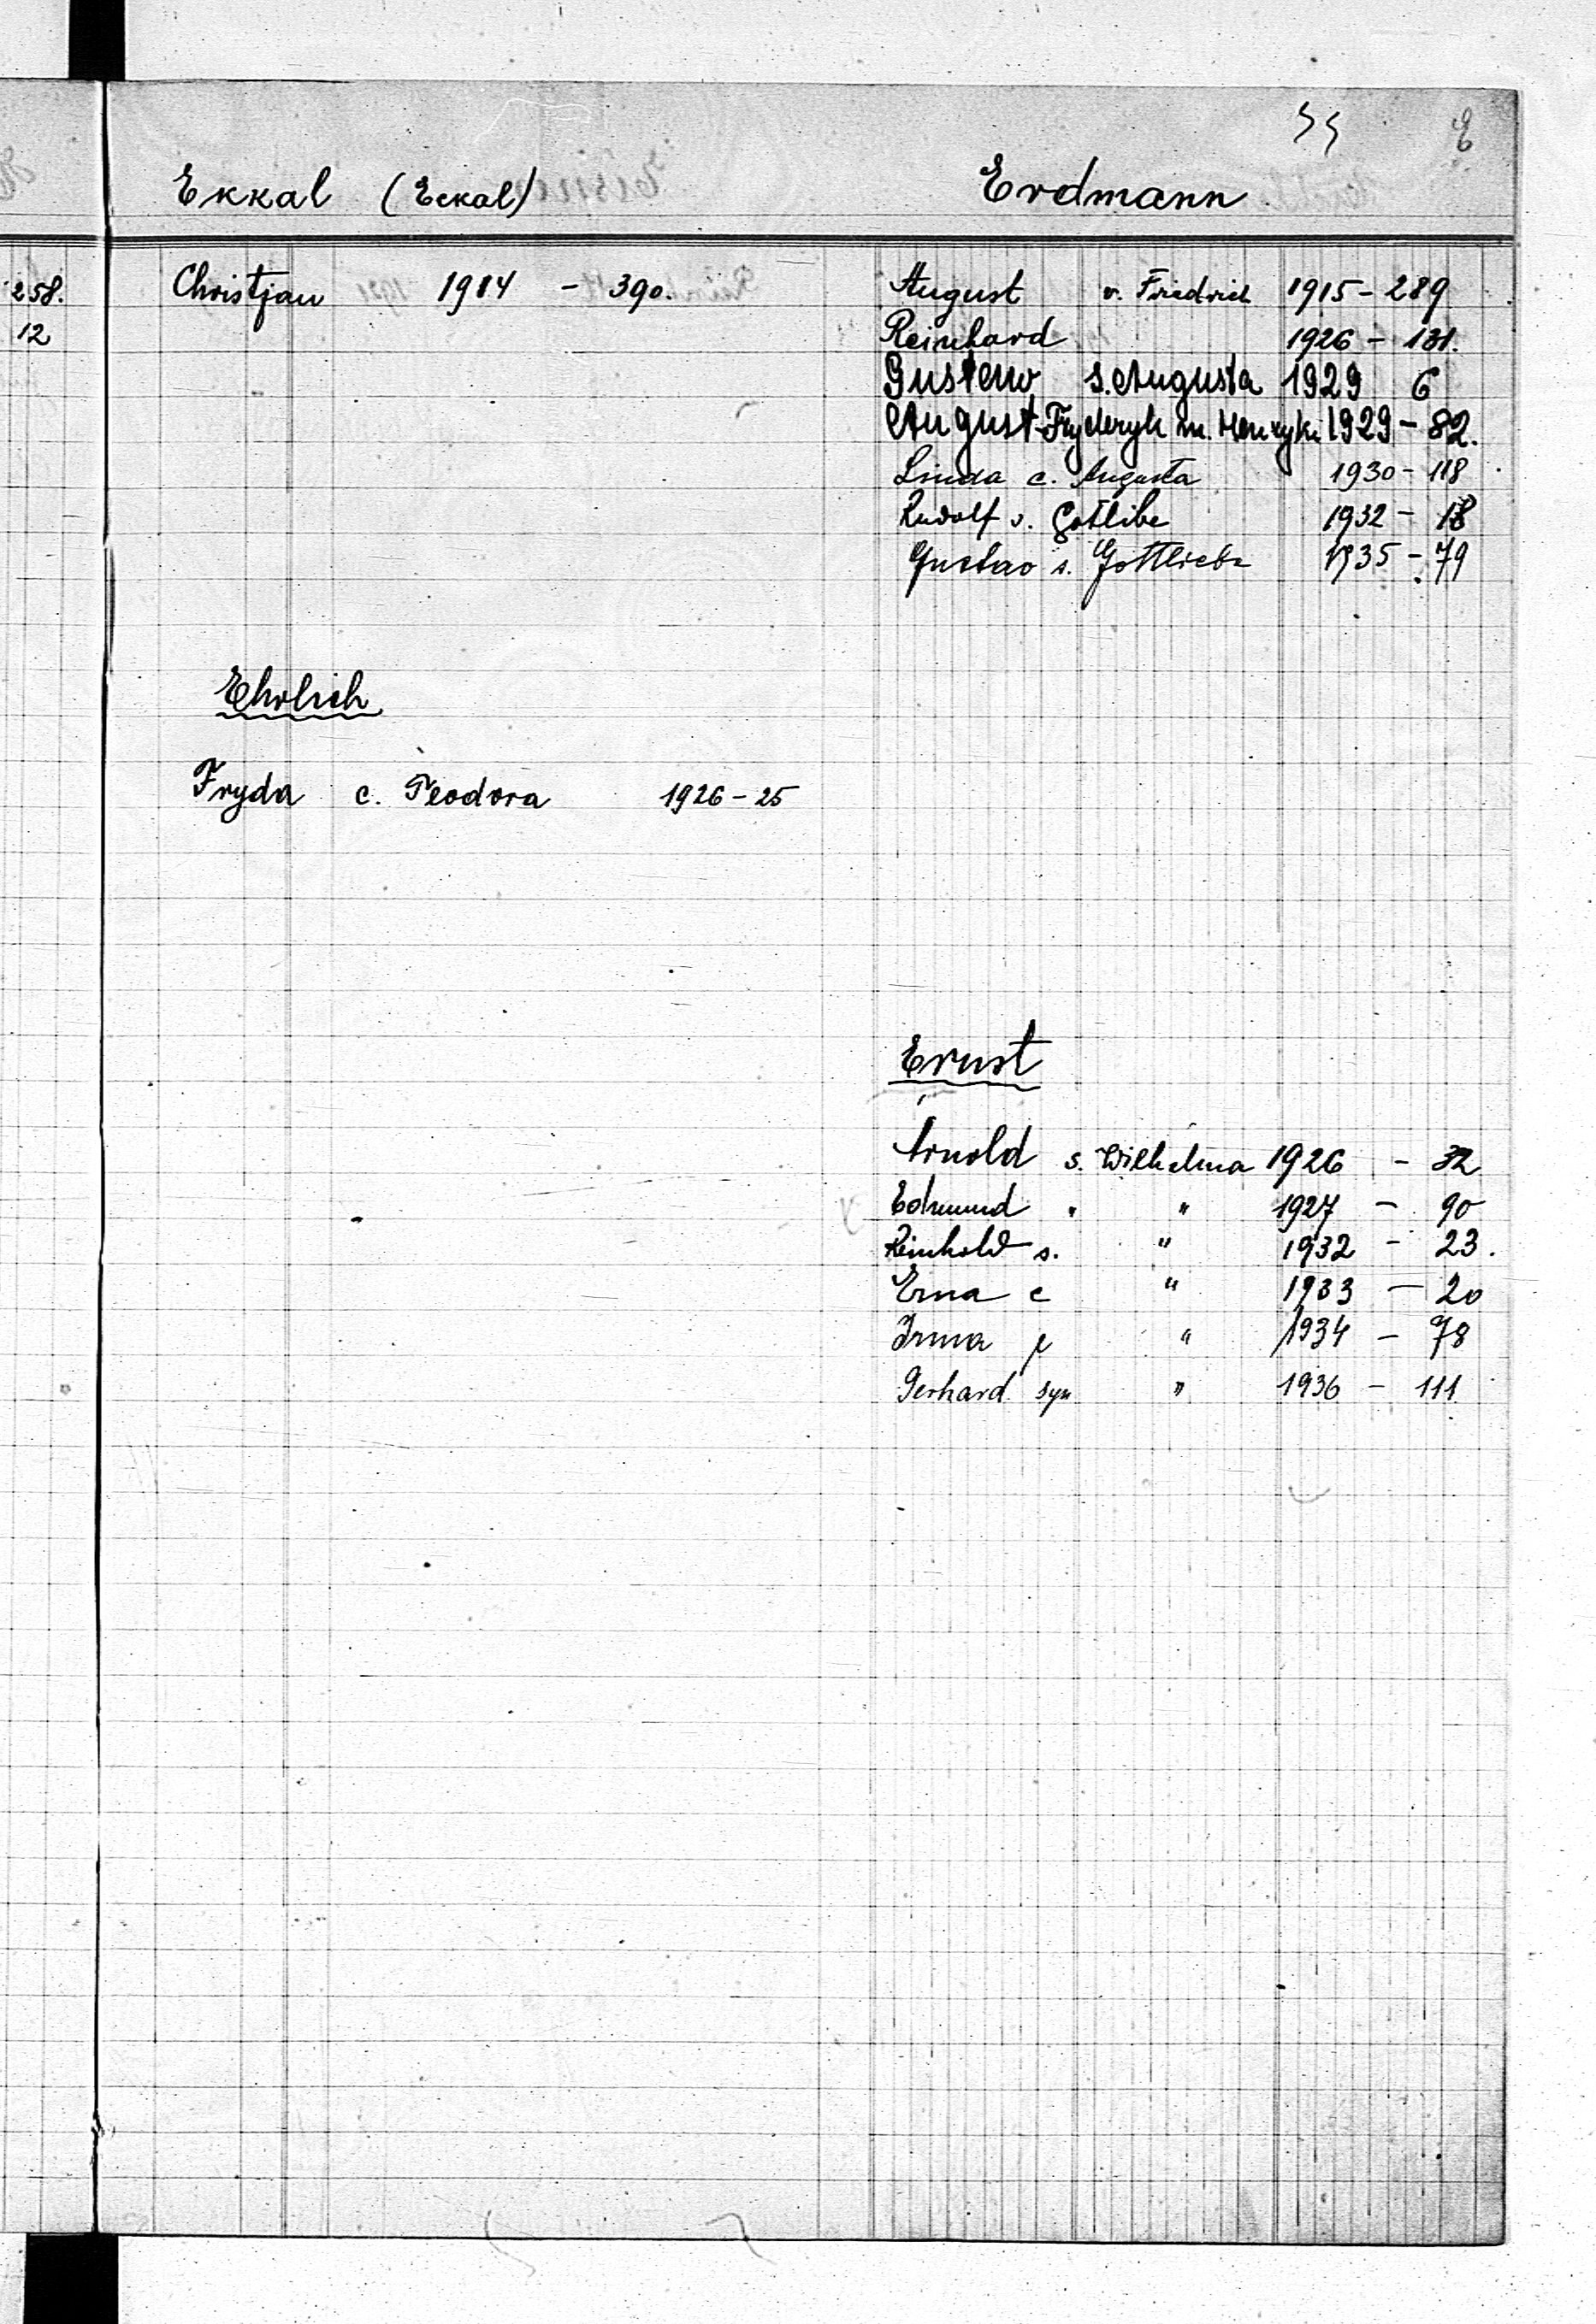 E
Ekkal (Eckal)
Erdmann
258.
12
Christjan 1914 - 390.
August v. Friedrich 1915 - 289
Reinhard 1926 - 131.
Gustaw s. Augusta 1929 6
August-Fryderyk m. Henryk 1929 - 82.
Linda c. Augusta 1930 - 118
Rudolf v. Gotliba 1932 - 18
Gustav s. Gottlieba 1935 - 79
Ehrlich
Fryda c. Teodora 1926 - 25
Ernst
Arnold s. Wilhelma 1926 - 32
Edmund " " 1927 - 90
Reinhold s. " 1932 - 23.
Erna c " 1933 - 20
Irma c " 1934 - 78
Gerhard syn " 1936 - 111